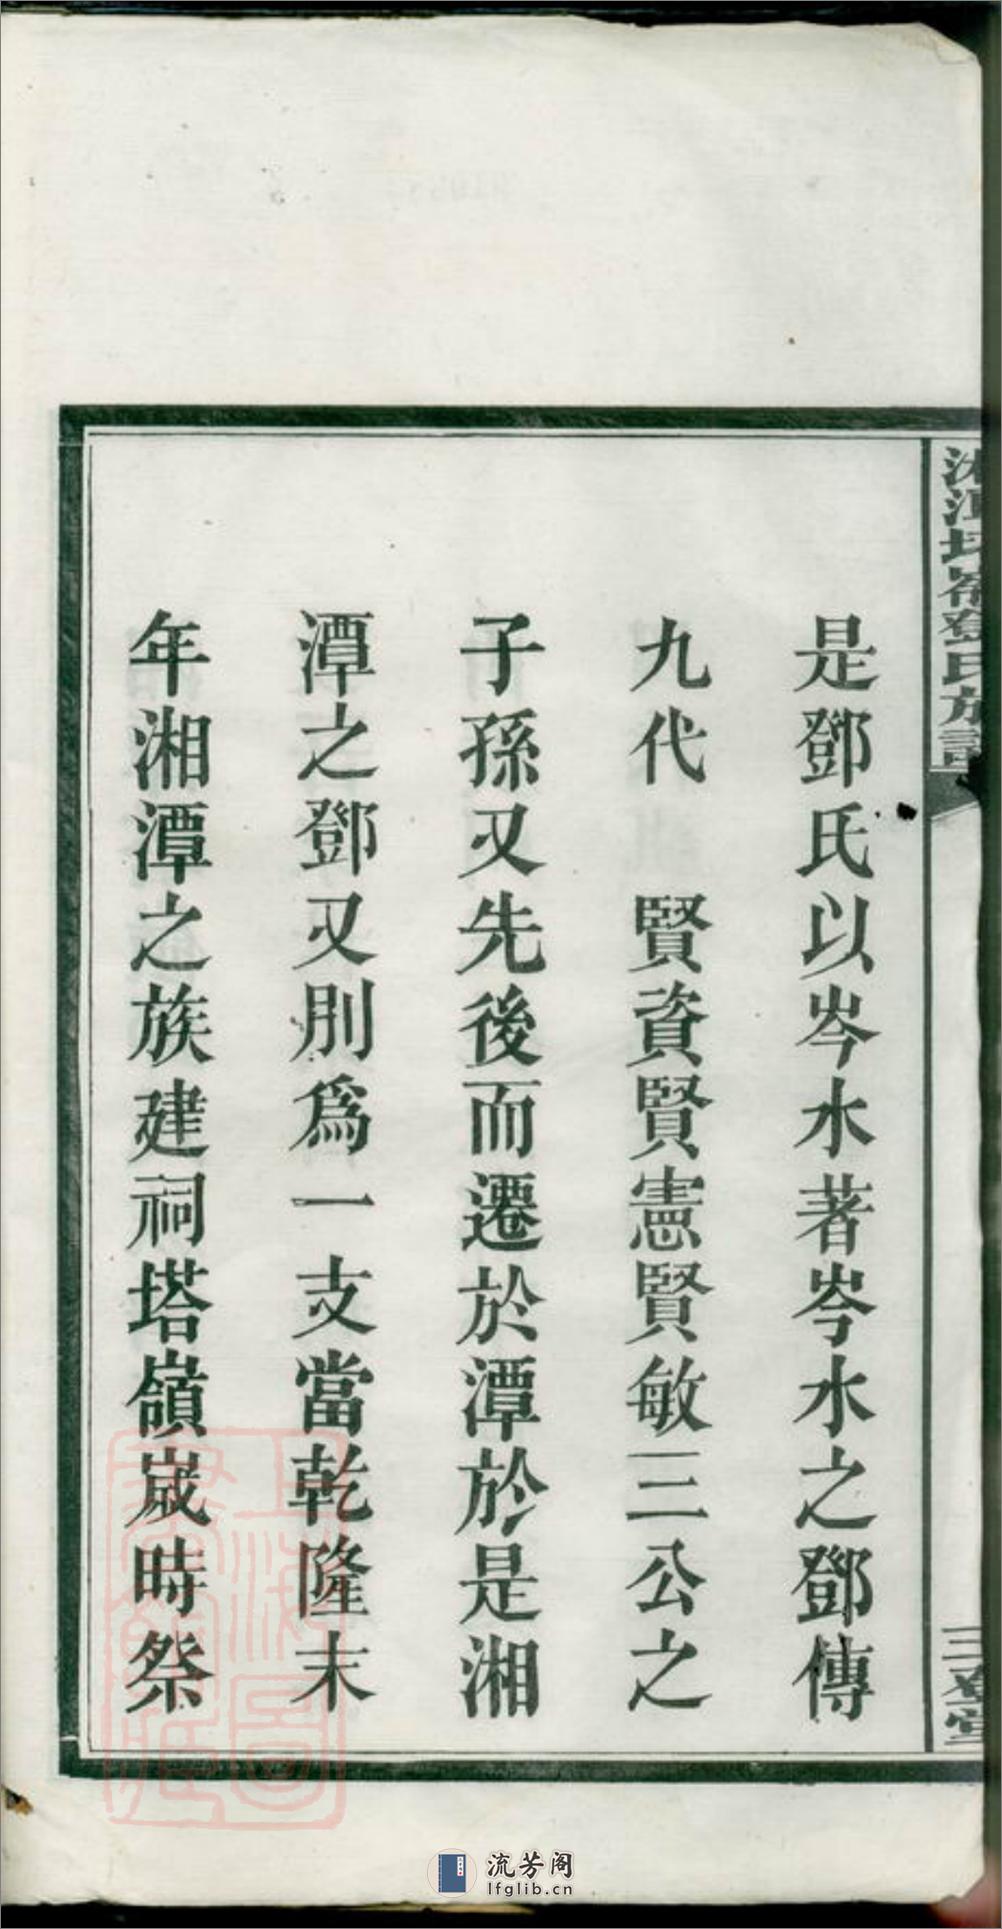 是鄧氏以岑水著岑水之鄧傳
九代　賢資賢憲賢敏三公之
子孫又先後而遷於潭於是湘
潭之鄧又別為一支當乾隆末
年湘潭之族建祠塔嶺歲時祭
塔嶺鄧氏族譜
三登堂
上海圖書館藏
流芳阁
lfglib.cn